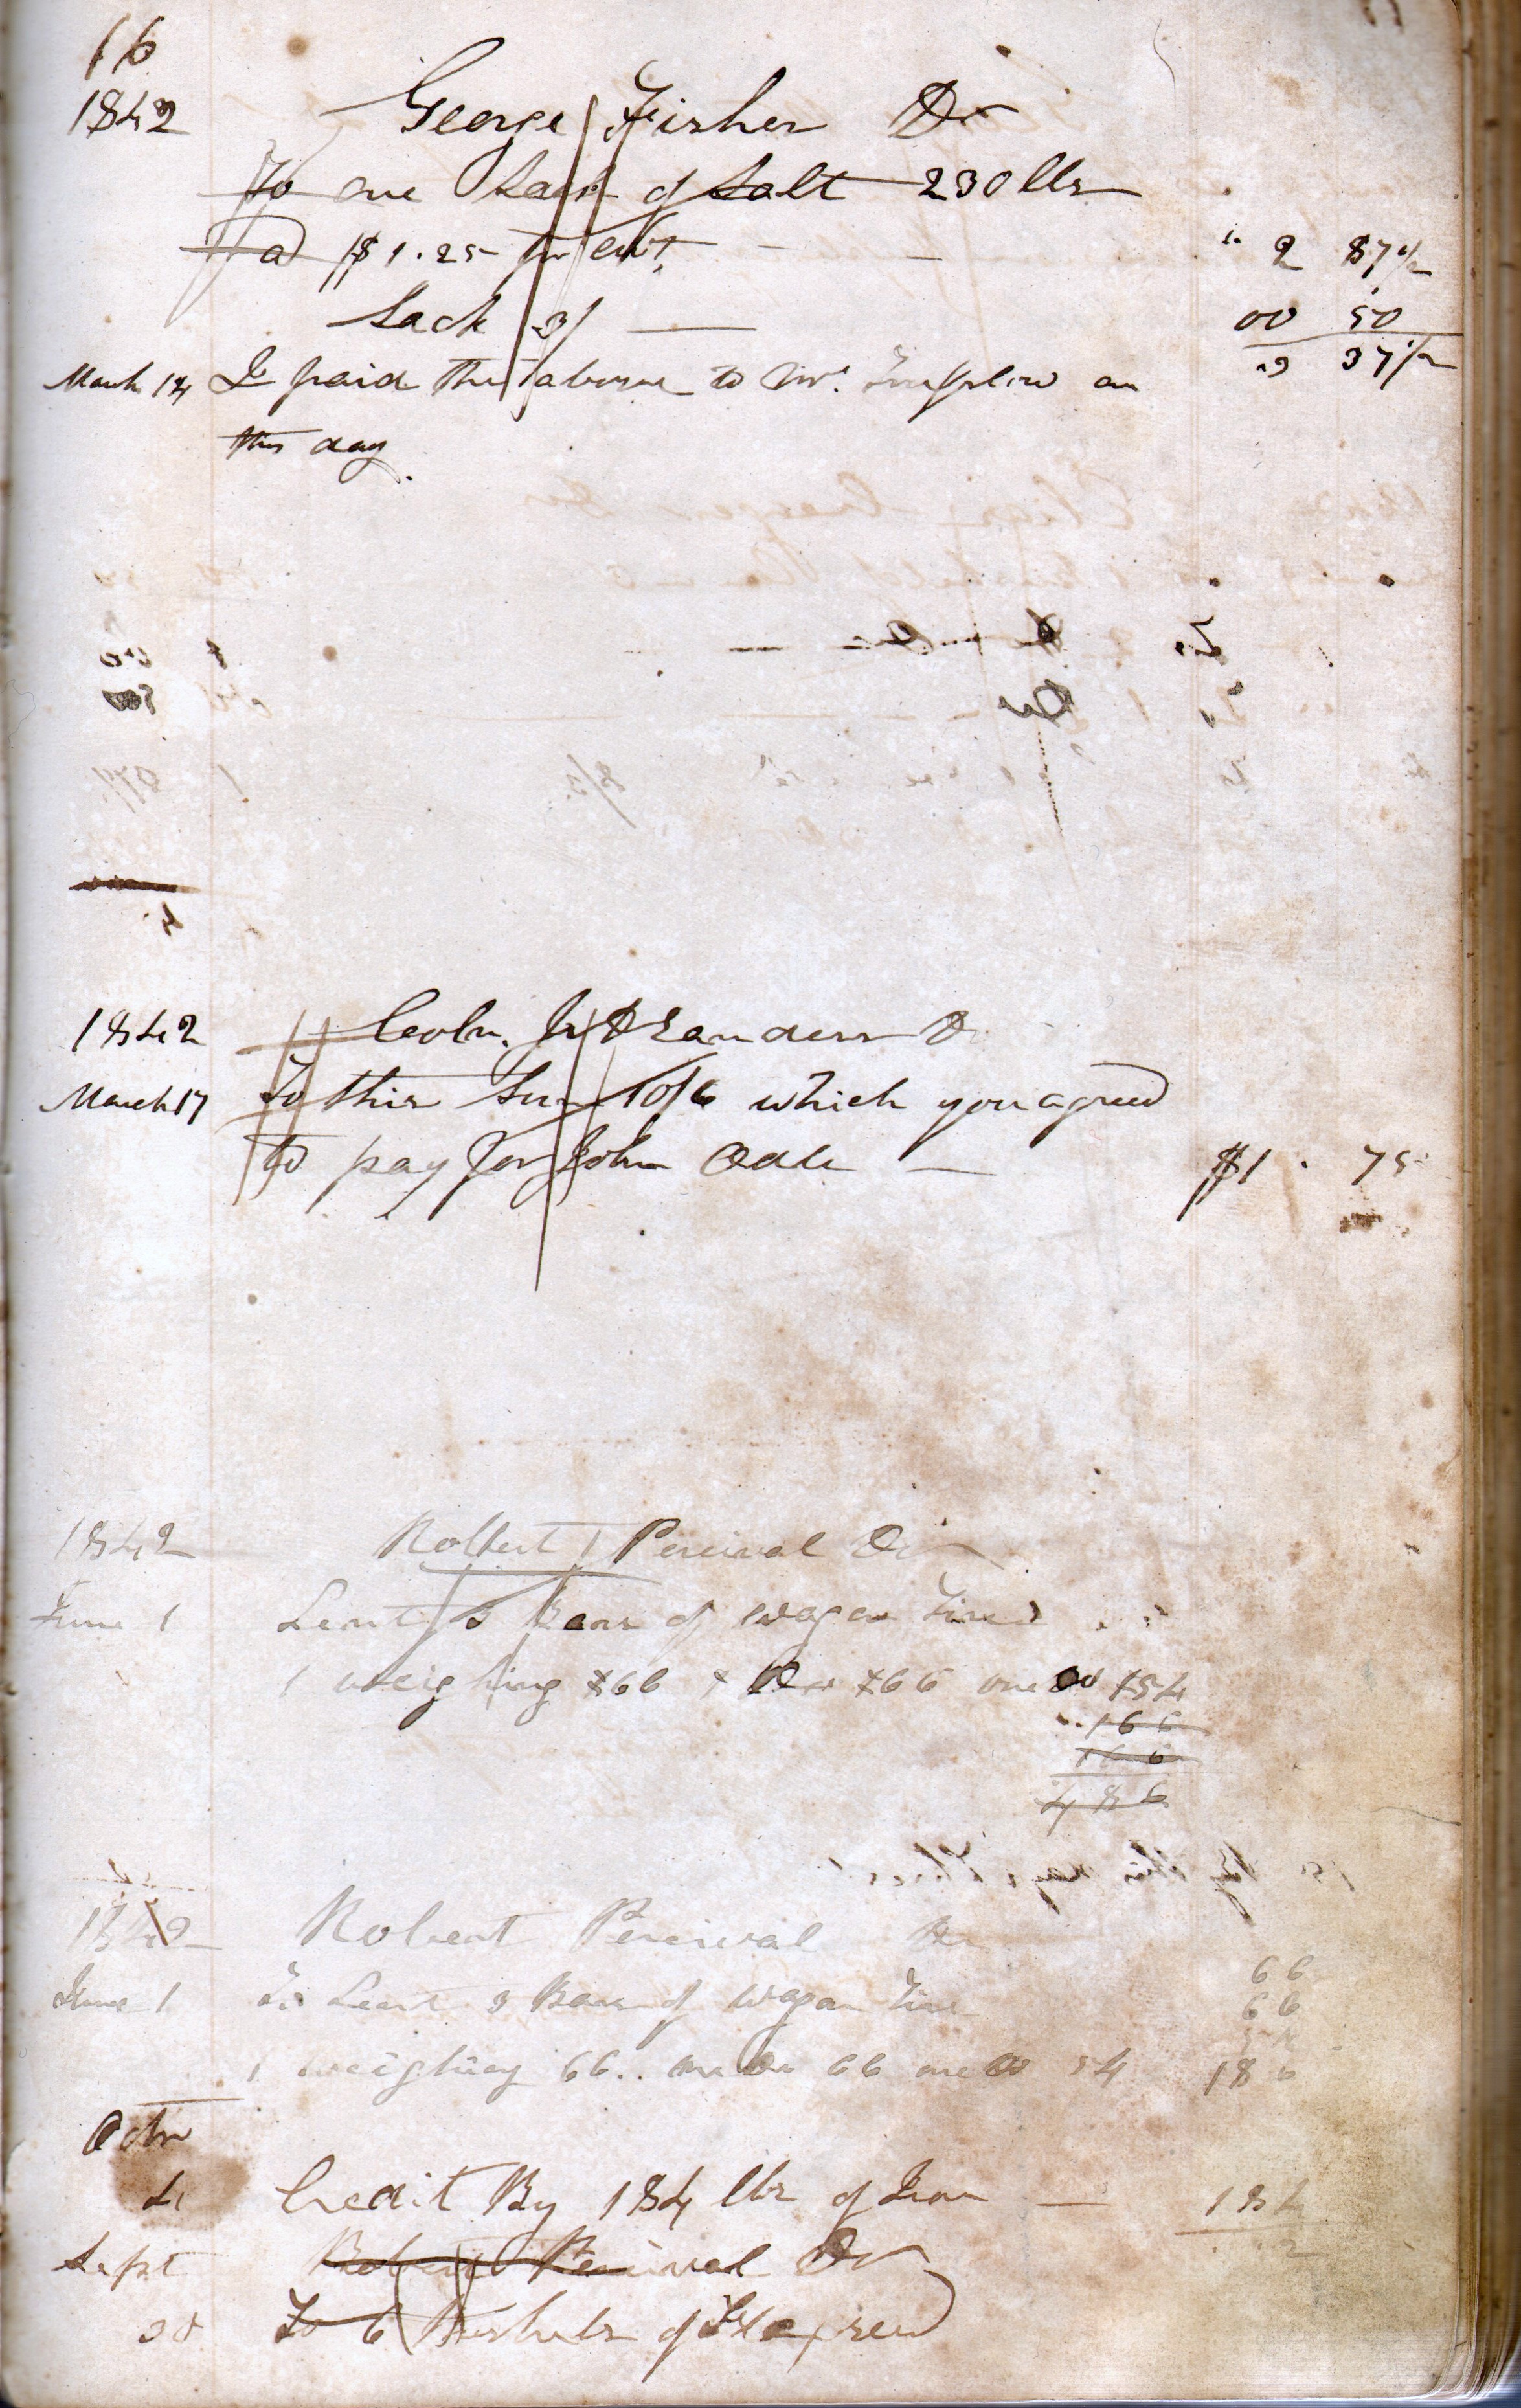 16
1842 George Fisher Dr
To one Sack of Salt 230 lbs
@ $1.25 pr cwt — — 2 87 1/2
Sack 3/ — 00 50
3 37 1/2
March 14 I paid the above to Mr. on
this day.
1842 Coln. Sanders Dr
March 17 To this Sum 10/6 which you agreed
to pay for John Odle — $1 . 75
1842 Robert Percival Dr
June 1 Lent 3 Bars of Wagon Tire
1 weighing 166 Do 166 one Do 154
166
166
486
1842 Robert Percival Dr
June 1 To Lent 3 Bars of Wagon Tire
1 weighing 66 .. one Do 66 one Do 54
66
66
54
186
Octbr
4 Credit By 184 lbs of Iron — 184
2
Sept Robert Percival Dr
30 To 6 Bushels of Flaxseed